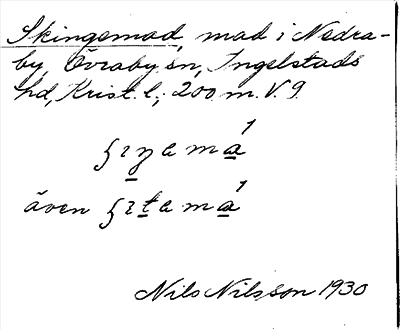 Skingemad, mad i Nedra-
by, Övraby sn, Ingelstads
hd, Krist. l.; 200 m. V. g.
ʃıŋɐma ́
även ʃıtɐma ́
Nils Nilsson 1930